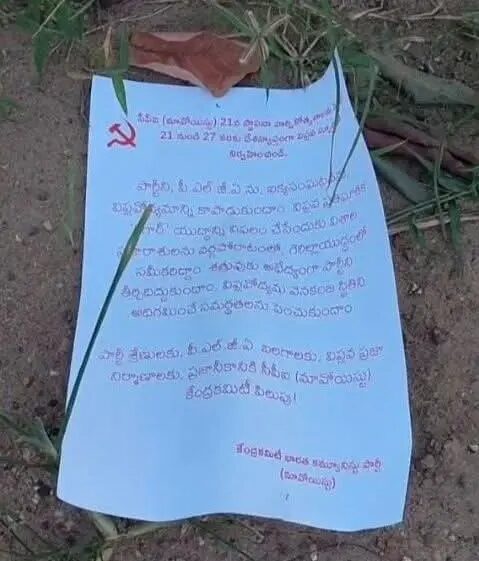 సీపీఐ (మావోయిస్టు) 21వ స్థాపనా వార్షికోత్సవాలను
21 నుండి 27 వరకు దేశవ్యాప్తంగా విప్లవ
నిర్వహించండి.
పార్టీని, పీ.ఎల్.జీ.ఏ.ను, ఐక్యసంఘటనను
విప్లవోద్యమాన్ని కాపాడుకుందాం. విప్లవ ప్రతిఘాతక
యుద్ధాన్ని విఫలం చేసేందుకు విశాల
ప్రజారాశులను వర్గపోరాటంలో, గెరిల్లాయుద్ధంలో
సమీకరిద్దాం. శత్రువుకు అభేద్యంగా పార్టీని
తీర్చిదిద్దుకుందాం. విప్లవోద్యమ వెనకంజ స్థితిని
అధిగమించే సమర్థతలను పెంచుకుందాం
పార్టీ శ్రేణులకు, పీ.ఎల్.జీ.ఏ. బలగాలకు, విప్లవ ప్రజా
నిర్మాణాలకు, ప్రజానీకానికి సీపీఐ (మావోయిస్టు)
కేంద్రకమిటీ పిలుపు!
కేంద్రకమిటీ భారత కమ్యూనిస్టు పార్టీ
(మావోయిస్టు)